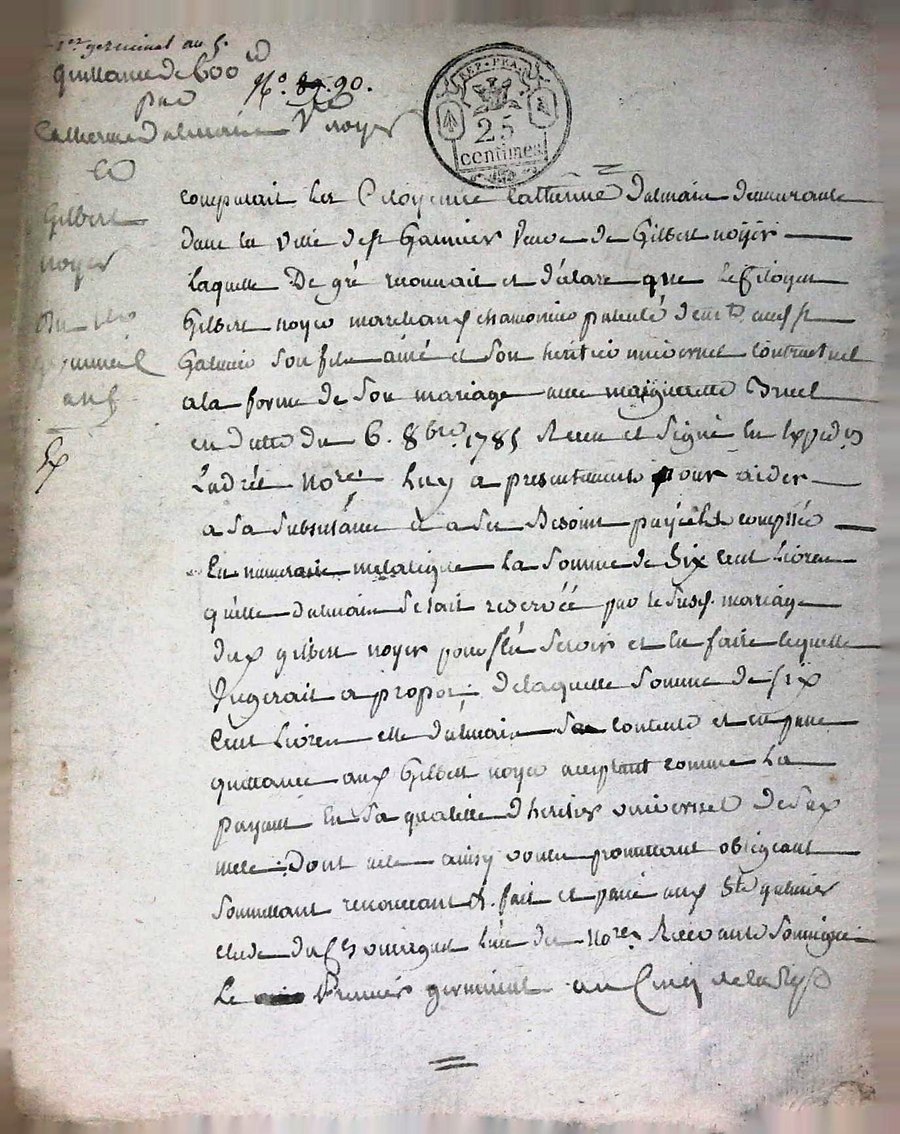 1er germinal an 5.
quittance de 600 ld
par
No. 89. 90.
Catherine Dalmain Ve noyer
REP. FRA.
25
centimes
Gilbert
noyer
germinal
an 5
comparait la Citoyenne Catherine Dalmain demeurante
dans la ville de st Galmier Veuve de Gilbert noyer
laquelle De gré reconnait et déclare que le Citoyen
Gilbert noyer marchand chamoiseur patenté demt aud st
Galmier son fils ainé et son heritier universel contractuel
a la forme de son mariage avec marguerite Bruel
en datte du 6. 8bre. 1785 Recu et signé
nore Luy a presentement pour aider
a sa subsistance et a ses Besoins payé et compté
En numeraire metalique la somme de Six cent livres
qu'elle Dalmain setait reservée par le susd. mariage
dud gilbert noyer pour sen servir et en faire lequelle
Jugerait a propos; de laquelle somme de six
Cent livres elle dalmain se contente et en passe
quittance aud Gilbert noyer acceptant comme la
payant En sa qualité d'heritier universel de sad
mere. Dont acte ainsy voulu promettant obligeant
soumettant renoncant &. fait et passé aud Ste galmier
etude du Cen L'un des nores Recevants soussigné
Le Premier germinal an Cinq de la Rep